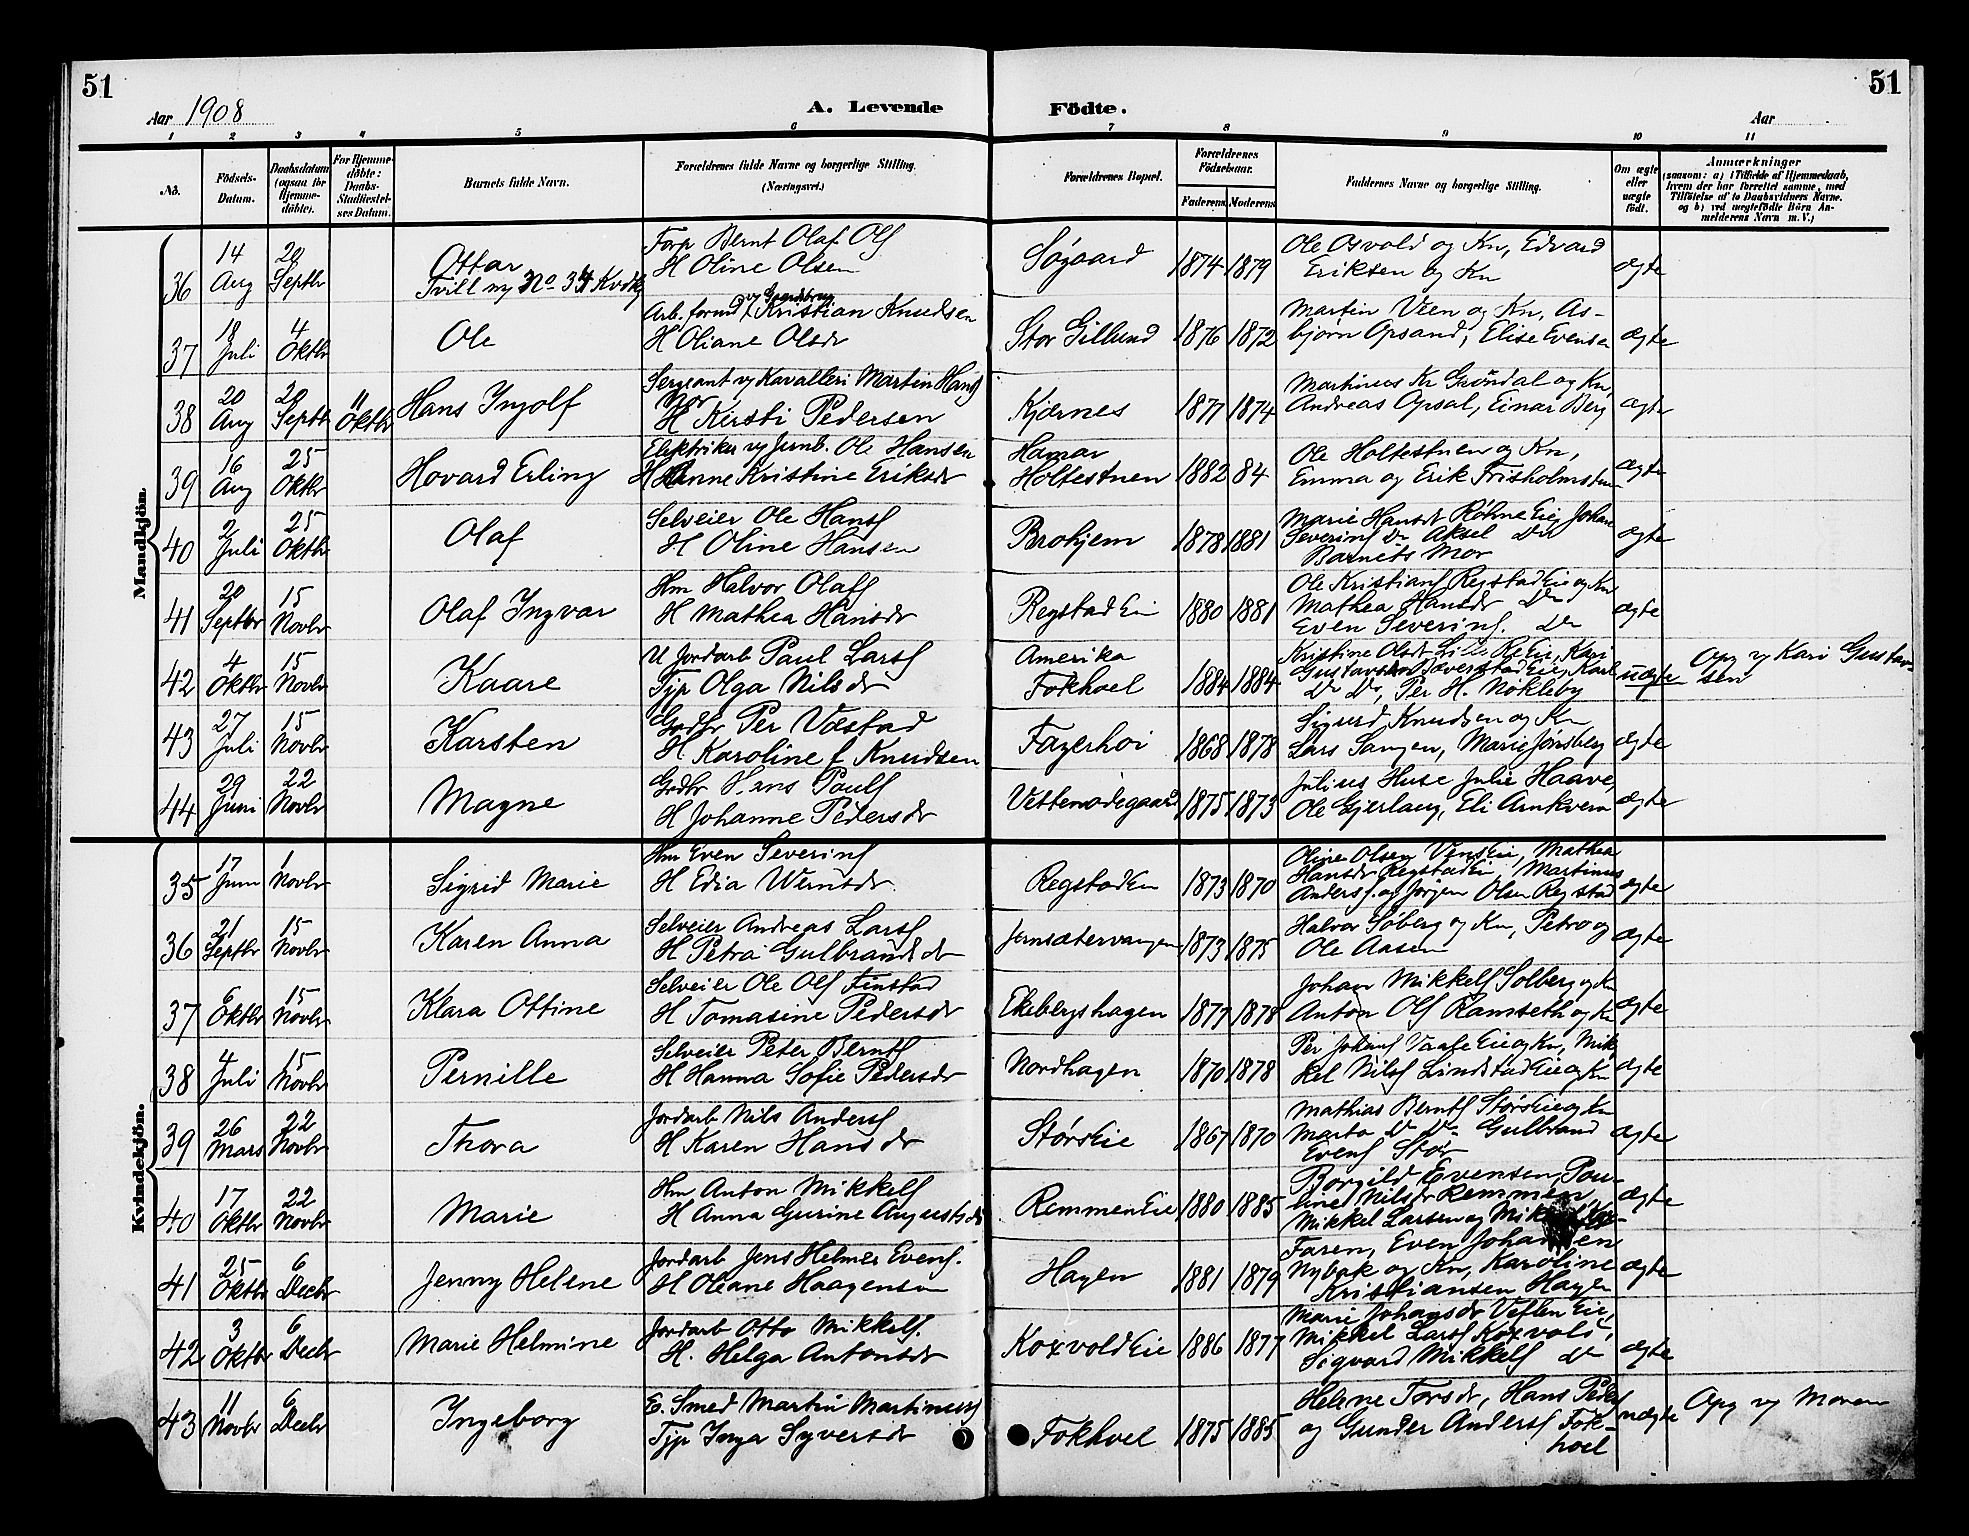 51
51
Aar 1908
A. Levende Födte.
Aar
1 2 3 4 5 6 7 8 9 10 11
No. | Födsels-Datum. | Daabsdatum (ogsaa for Hjemme-döbte). | For Hjemme-döbte: Daabs-Stadfæstel-ses Datum. | Barnets fulde Navn. | Forældrenes fulde Navne og borgerlige Stilling. (Næringsvei.) | Forældrenes Bopæl. | Forældrenes Födselsaar. Faderens Moderens | Faddernes Navne og borgerlige Stilling. | Om ægte eller uægte födt. | Anmærkninger (saasom: a) i Tilfælde af Hjemmedaab, hvem der har forrettet samme, med Tilföielse af to Daabsvidners Navne, og b) ved uægtefödte Börn An-melderens Navn m. V.)
Mandkjön.
36 | 14 Aug | 20 Septbr | Ottar Tvill m No. 34 Kvdkj | Forp Bernt Olaf Ols H Oline Olsen | Søgaard | 1874 | 1879 | Ole Osvold og Kn, Edvard Eriksen og Kn | ægte
37 | 18 Juli | 4 Oktbr | Ole | Arb. formd v Gaardsbrug Kristian Knudsen H Oliane Olsdr | Stor Gillund | 1876 | 1872 | Martin Veen og Kn, As-bjørn Opsand, Elise Evensen | ægte
38 | 20 Aug | 20 Septbr | 11 Oktbr | Hans Ingolf | Sergeant v Kavalleri Martin Hans Mor H Kirsti Pedersen | Kjærnes | 1877 | 1874 | Martinus Kr Grøndal og Kn, Andreas Opsal, Einar Berg | ægte
39 | 16 Aug | 25 Oktbr | Hovard Erling | Elektriker v Jernb. Ole Hansen H Anne Kristine Eriksdr | Hamar Holtestuen | 1882 | 84 | Ole Holtestuen og Kn, Emma og Erik Frisholmstuen | ægte
40 | 2 Juli | 25 Oktbr | Olaf | Selveier Ole Hans H Oline Hansen | Brohjem | 1878 | 1881 | Marie Hansdr Røhne Eie, Johan Severins Do Aksel Do Barnets Mor | ægte
41 | 20 Septbr | 15 Novbr | Olaf Ingvar | Hm Halvor Olafs H Mathea Hansdr | Regstad Ei | 1880 | 1881 | Ole Kristians Regstad Eie og Kn Mathea Hansdr Do Even Severins. Do | ægte
42 | 4 Oktbr | 15 Novbr | Kaare | U Jordarb Paul Lars Tjp Olga Nilsdr | Amerika Fokhoel | 1884 | 1884 | Kristine Olsdr Kari Gustavs Karl Do Do, Per H. Nøkleby | uægte | Opg v Kari Gustav-sen
43 | 27 Juli | 15 Novbr | Karsten | Grdbr Per Væstad H Karoline f Knudsen | Fagerhoi | 1868 | 1878 | Sigurd Knudsen og Kn Lars Sangen, Marie Jønsberg | ægte
44 | 29 Juni | 22 Novbr | Magne | Grdbr Hans Pauls H Johanne Pedersdr | Vettenodegaard | 1875 | 1873 | Julius Huse Julie Haave, Ole Gjerlaug, Eli Arnkvern | ægte
Kvindekjön.
35 | 17 Juni | 1 Novbr | Sigrid Marie | Hm Even Severins H Edia Wernsdr. | Regstad Ei | 1873 | 1870 | Oline Olsen Vens Eie, Mathea Hansdr Regstad Ei, Martinus Anders. og Jørgen Olsen Regstad | ægte
36 | 21 Septbr | 15 Novbr | Karen Anna | Selveier Andreas Lars H Petra Gulbrandsdr | Jernsætervangen | 1873 | 1875 | Halvor Søberg og Kn, Petro og Ole Aasen | ægte
37 | 6 Oktbr | 15 Novbr | Klara Ottine | Selveier Ole Ols Finstad H Tomasine Pedersdr | Ekebergshagen | 1877 | 1878 | Johan Mikkels Solberg og Kn Anton Ols Ramseth og Kn | ægte
38 | 4 Juli | 15 Novbr | Pernille | Selveier Peter Bernts H Hanna Sofie Pedersdr | Nordhagen | 1870 | 1878 | Per Johans Eie og Kn, Mik-kel Nils Lindstad Eie og Kn | ægte
39 | 26 Mars | 22 Novbr | Thora | Jordarb Nils Anders H Karen Hansdr | Størs Eie | 1867 | 1870 | Mathias Bernts Størs Eie og Kn Marta Do Do Gulbrand Evens Stør | ægte
40 | 17 Oktbr | 22 Novbr | Marie | Hm Anton Mikkels H Anna Gurine Augustsdr | Remmen Eie | 1880 | 1885 | Borgild Evensen, Pau-line Nilsdr Remmen Mikkel Larsen og | ægte
41 | 25 Oktbr | 6 Decbr | Jenny Helene | Jordarb Jens Helmer Evens. H Oliane Haagensen | Hagen | 1881 | 1879 | Faren, Even Johansen Nybak og Kn, Karoline Kristiansen Hagen | ægte
42 | 3 Oktbr | 6 Decbr | Marie Helmine | Jordarb Otto Mikkels. H. Helga Antonsdr | Koxvold Eie | 1886 | 1877 | Marie Johansdr Veflen Eie, Mikkel Lars Koxvold, Sigvard Mikkels Do | ægte
43 | 11 Novbr | 6 Decbr | Ingeborg | E. Smed Martin Martinius Tjp Inga Syversdr | Fokhoel | 1875 | 1885 | Helene Torsdr, Hans Peders og Gunder Anders Fok-hoel | uægte | Opg v Moren